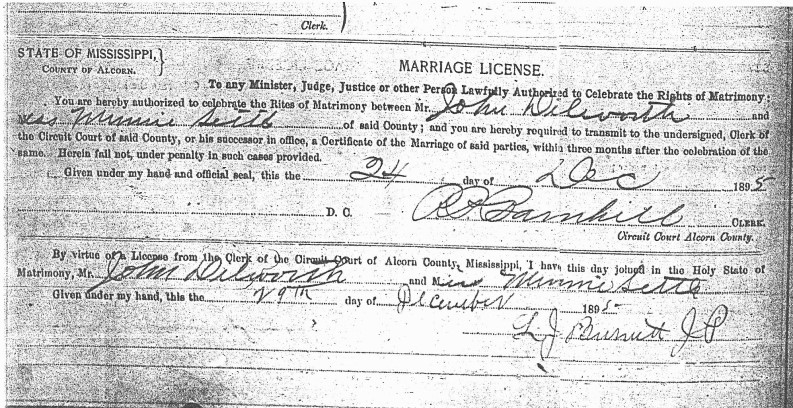 Clerk.
STATE OF MISSISSIPPI,
COUNTY OF ALCORN.
MARRIAGE LICENSE.
To any Minister, Judge, Justice or other Person Lawfully Authorized to Celebrate the Rights of Matrimony:
You are hereby authorized to celebrate the Rites of Matrimony between Mr. John Dilworth and
Miss Minnie Settle of said County; and you are hereby required to transmit to the undersigned, Clerk of
the Circuit Court of said County, or his successor in office, a Certificate of the Marriage of said parties, within three months after the celebration of the
same. Herein fail not, under penalty in such cases provided.
Given under my hand and official seal, this the 24 day of Dec 1895
D. C. Barnhill CLERK.
Circuit Court Alcorn County.
By virtue of a License from the Clerk of the Circuit Court of Alcorn County, Mississippi, I have this day joined in the Holy State of
Matrimony, Mr. John Dilworth and Miss Minnie Settle
Given under my hand, this the 29th day of December 1895
J. P.